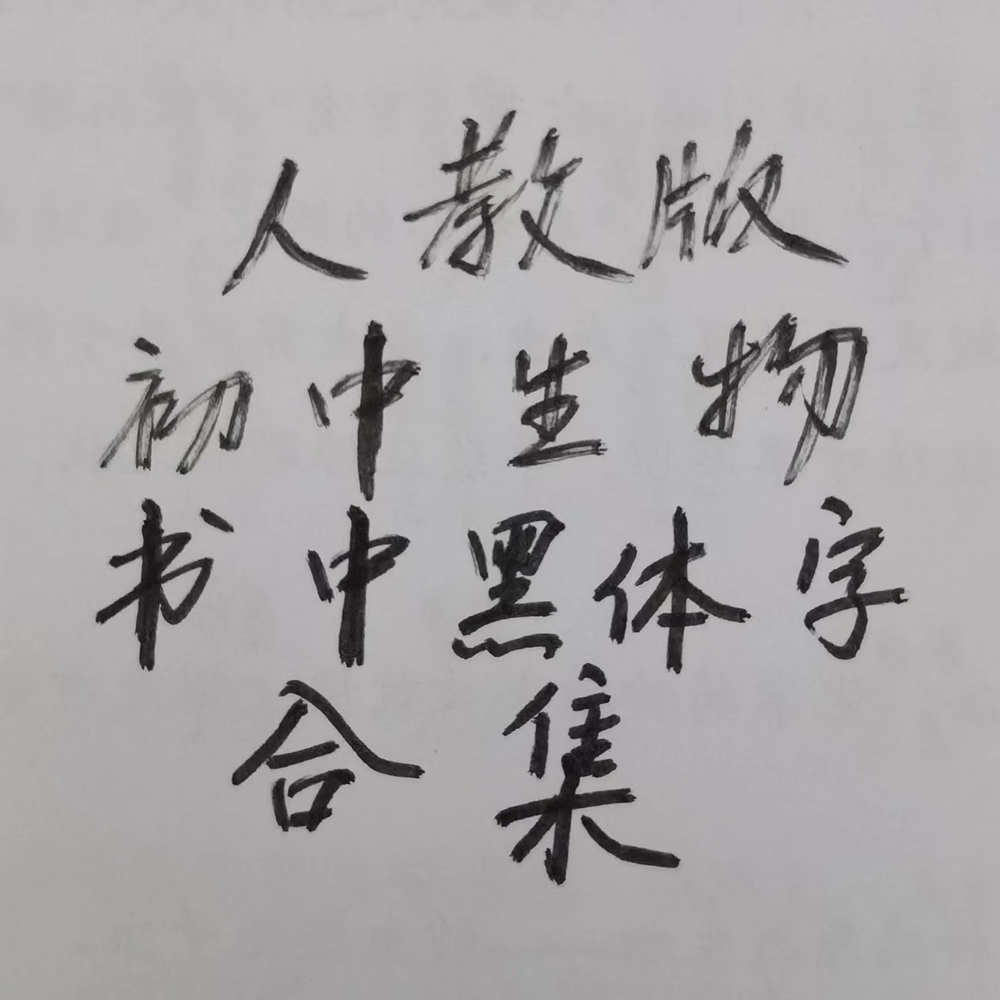 人教版
初中生物
书中黑体字
合集